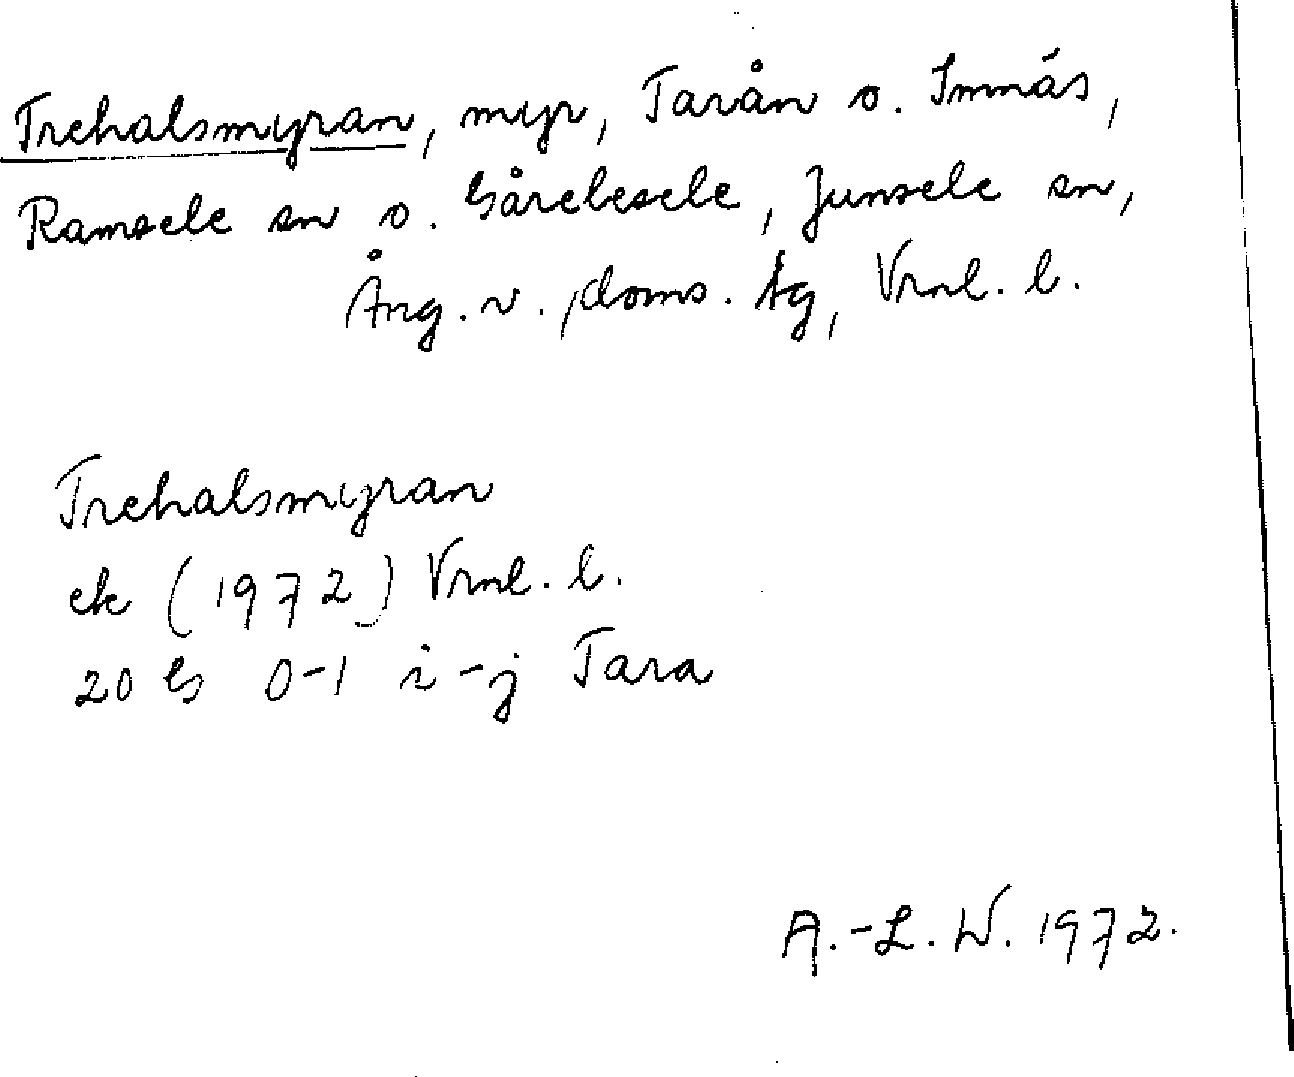 Trehalsmyran, myr, Tarån o. Immås,
Ramsele sn o. Gårelesele, Junsele sn,
Ång. v. doms. tg, Vrnl. l.
Trehalsmyran
ek (1972) Vrnl. l.
20 G 0-1 i-j Tara
A.-L. W. 1972.